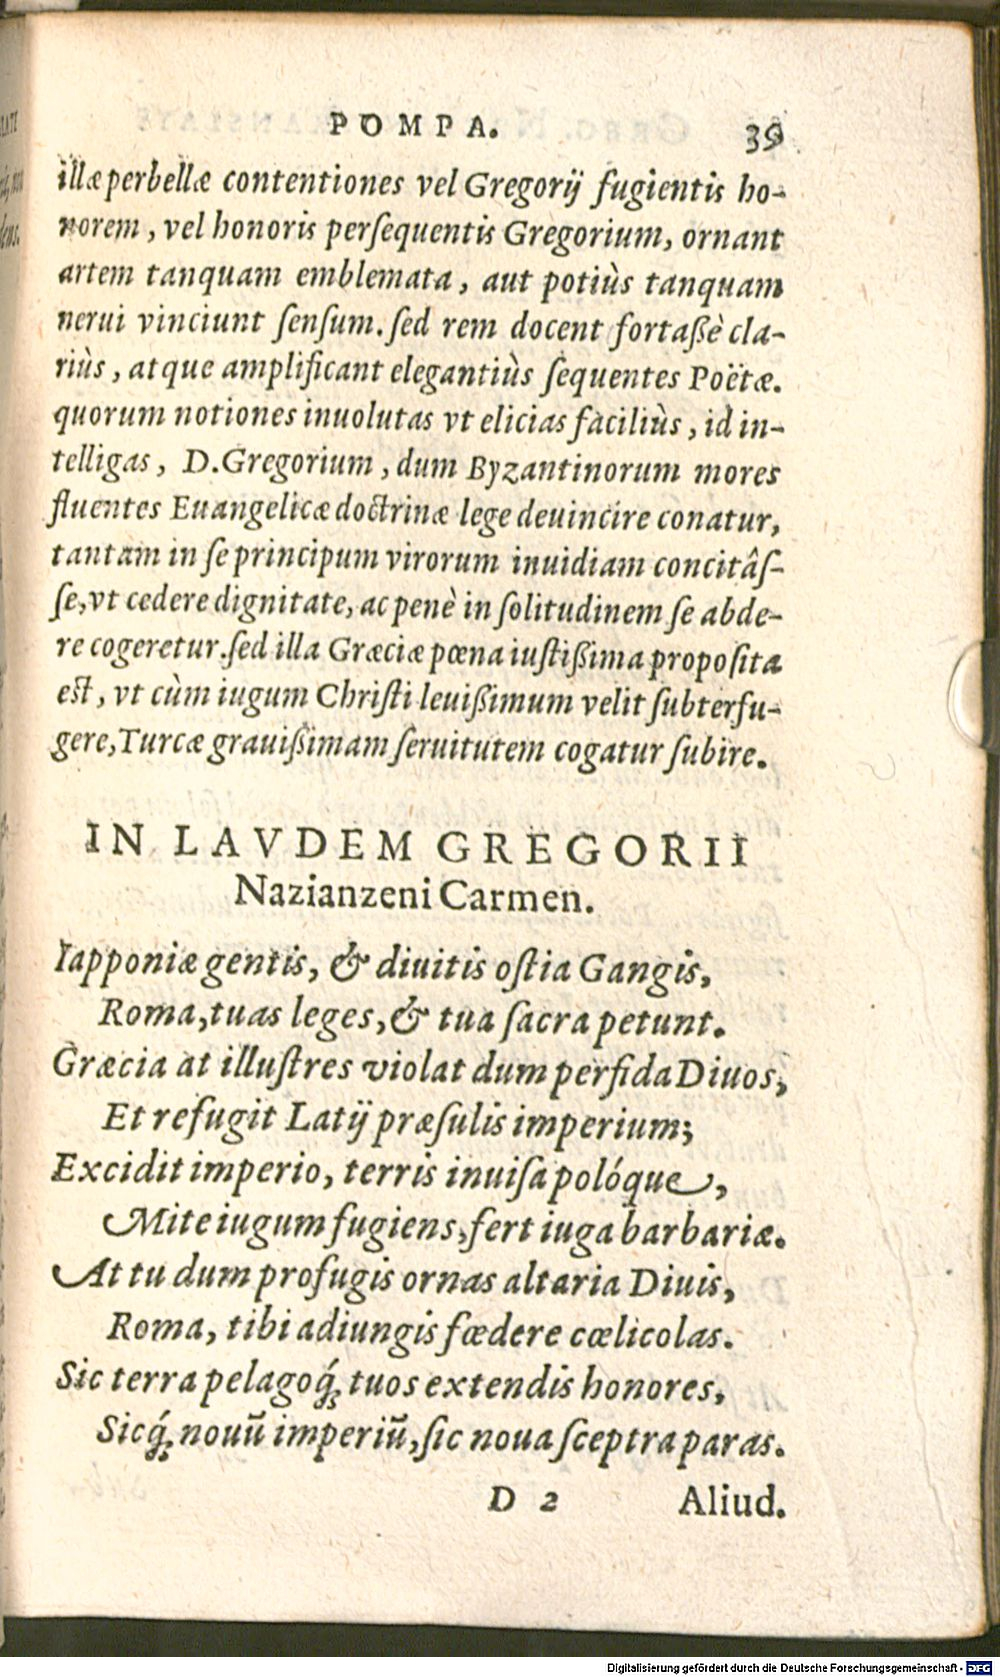 POMPA. 39
illæ perbellæ contentiones vel Gregorij fugientis ho-
norem, vel honoris perſequentis Gregorium, ornant
artem tanquam emblemata, aut potiùs tanquam
nerui vinciunt ſenſum. ſed rem docent fortaßè cla-
riùs, atque amplificant elegantiùs ſequentes Poëtæ.
quorum notiones inuolutas vt elicias faciliùs, id in-
telligas, D. Gregorium, dum Byzantinorum mores
fluentes Euangelicæ doctrinæ lege deuincire conatur,
tantam in ſe principum virorum inuidiam concitâſ-
ſe, vt cedere dignitate, ac penè in ſolitudinem ſe abde-
re cogeretur. ſed illa Græciæ pœna iuſtißima propoſita
est, vt cùm iugum Chriſti leuißimum velit ſubterfu-
gere, Turcæ grauißimam ſeruitutem cogatur ſubire.
IN LAVDEM GREGORII
Nazianzeni Carmen.
Iapponiæ gentis, & diuitis oſtia Gangis,
Roma, tuas leges, & tua ſacra petunt.
Græcia at illuſtres violat dum perfida Diuos,
Et refugit Latij præſulis imperium;
Excidit imperio, terris inuiſa polóque,
Mite iugum fugiens, fert iuga barbariæ.
At tu dum profugis ornas altaria Diuis,
Roma, tibi adiungis fœdere cœlicolas.
Sic terra pelagoq́; tuos extendis honores,
Sicq́; nouũ imperiũ, ſic noua ſceptra paras.
D 2 Aliud.
Digitalisierung gefördert durch die Deutsche Forschungsgemeinschaft - DFG